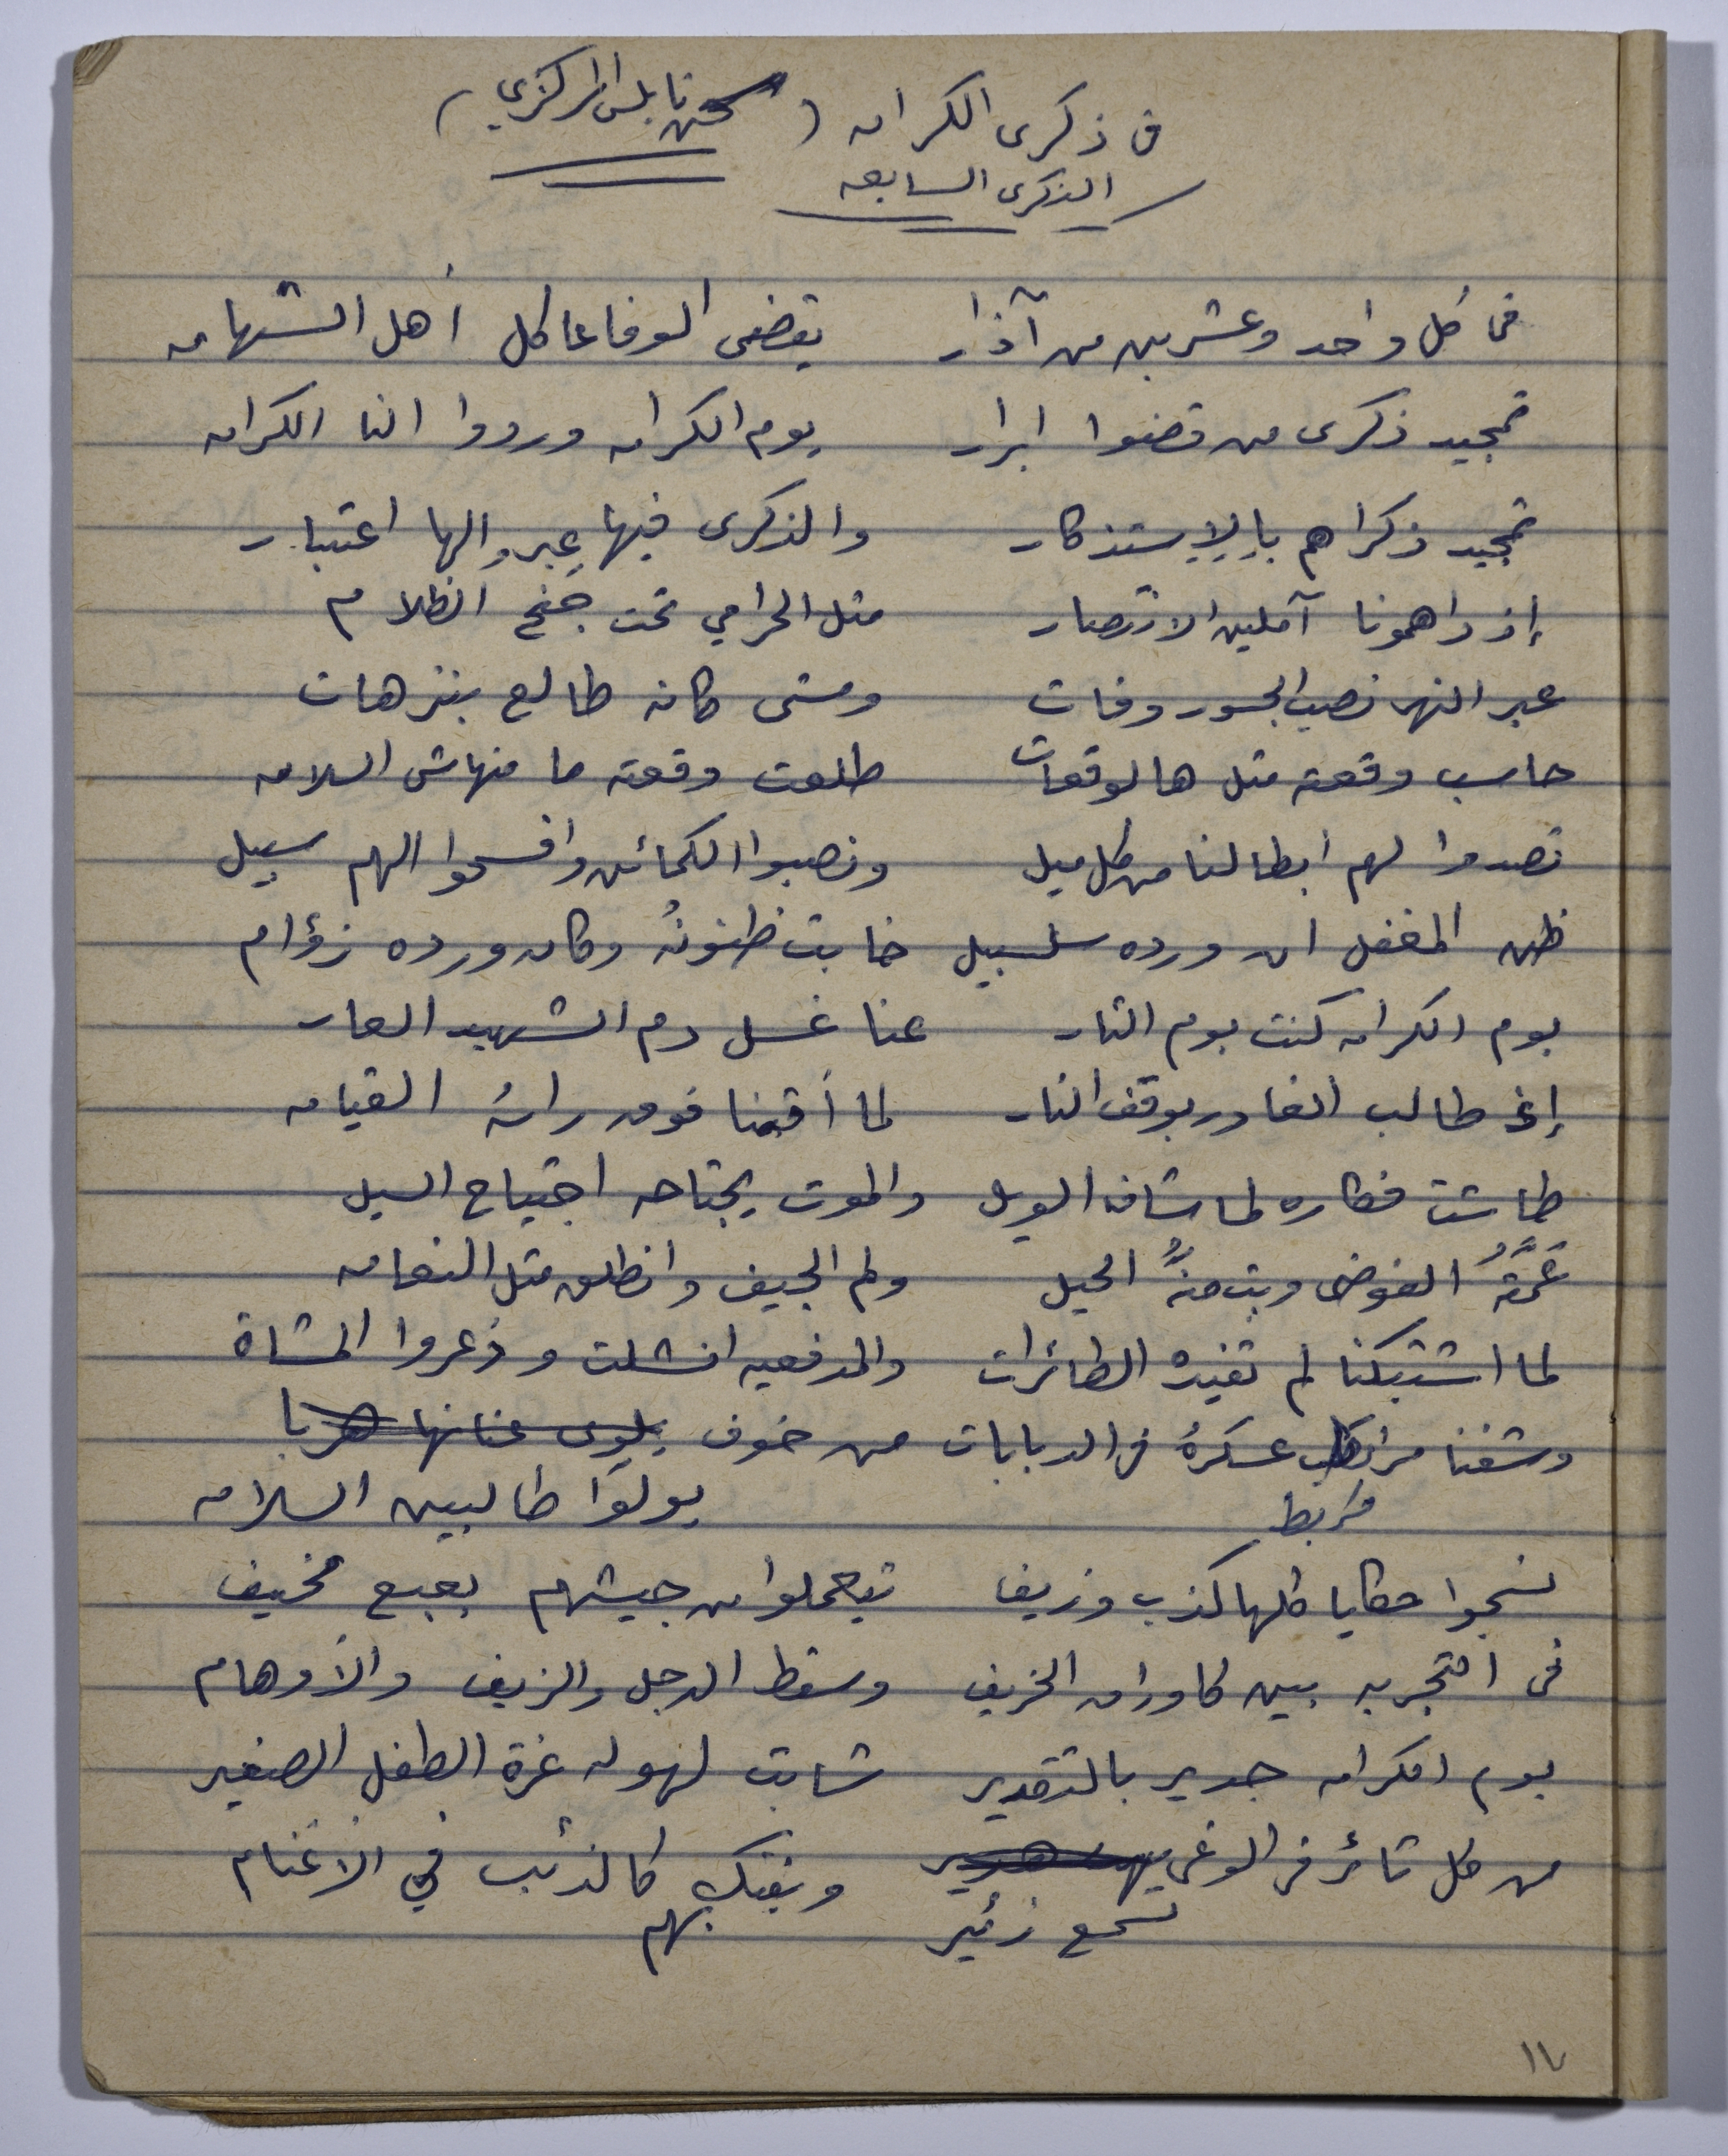 في ذكرى الكرامه (سجن نابلس المركزي)
الذكرى السابعه
في كل واحد وعشرين من آذار يقضي الوفا عا كل أهل الشهامه
تمجيد ذكرى من قضوا ابرار يوم الكرامه وردوا النا الكرامه
تمجيد ذكراهم بالإستذكار والذكرى فيها عِبر والها اعتبار
إذ داهمونا آملين الانتصار مثل الحرامي تحت جنح الظلام
عبر النهر نصب الجسور وفات ومشى كانه طالع بنزهات
حاسب وقعته مثل هالوقعات طلعت وقعته ما منهاش السلامه
تصدوا لهم ابطالنا من كل ميل ونصبوا الكمائن وافسحوا الهم سبيل
ظن المغفل ان ورده سلسبيل خابت ظنونهُ وكان ورده زؤام
يوم الكرامه كنت يوم الثار عنا غسل دم الشهيد العار
إغ طالب الغادر بوقف النار لما أقمنا فوق راسه القيامه
طاشت فكاره لما شاف الويل والموت يجتاحه اجتياح السيل
عَمَّتهُ الفوضى وبت منهُ الحيل ولم الجيف وانطلق مثل النعامه
لما اشتبكنا لم تفيده الطائرات والمدفعيه انشلت وذعروا المشاة
وشفنا عسكرهُ في الدبابات من خوف يلوى عنانها هربا
مربط يولوا طالبين السلامه
نسجوا حكايا كلها كذب وزيف تيعملوا من جيشهم بعبع مخيف
في التجربه بين كاوراق الخريف وسقط الدجل والزيف والأوهام
يوم الكرامه جدير بالتقدير شابت لهوله غرة الطفل الصغير
من كل ثائر في الوغى ويفتك كالذئب في الأغنام
تسمع زئير بهم
١٧